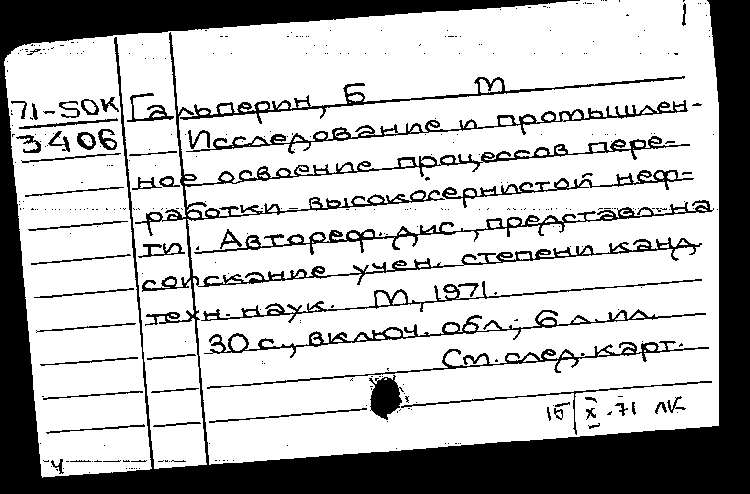 71-50К Гальперин, Б М
3406 Исследование и промышлен-
ное освоение процессов пере-
работки высокосернистой неф-
ти. Автореф. дис., представл. на
соискание учен. степени канд.
техн. наук. М., 1971.
30 с., включ. обл.; 6 л. ил.
См. след. карт.
15 X.71 ЛК